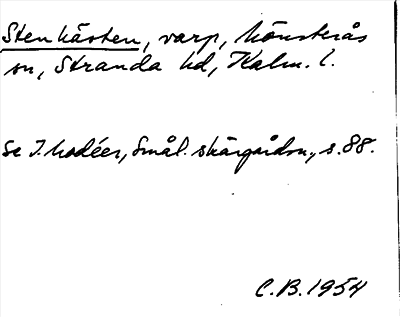 Stenkåsten, varp, Mönsterås
sn, Stranda hd, Kalm. l.
Se I. Modéer, Smål. skärgårdsn., s. 88.
C.B. 1954